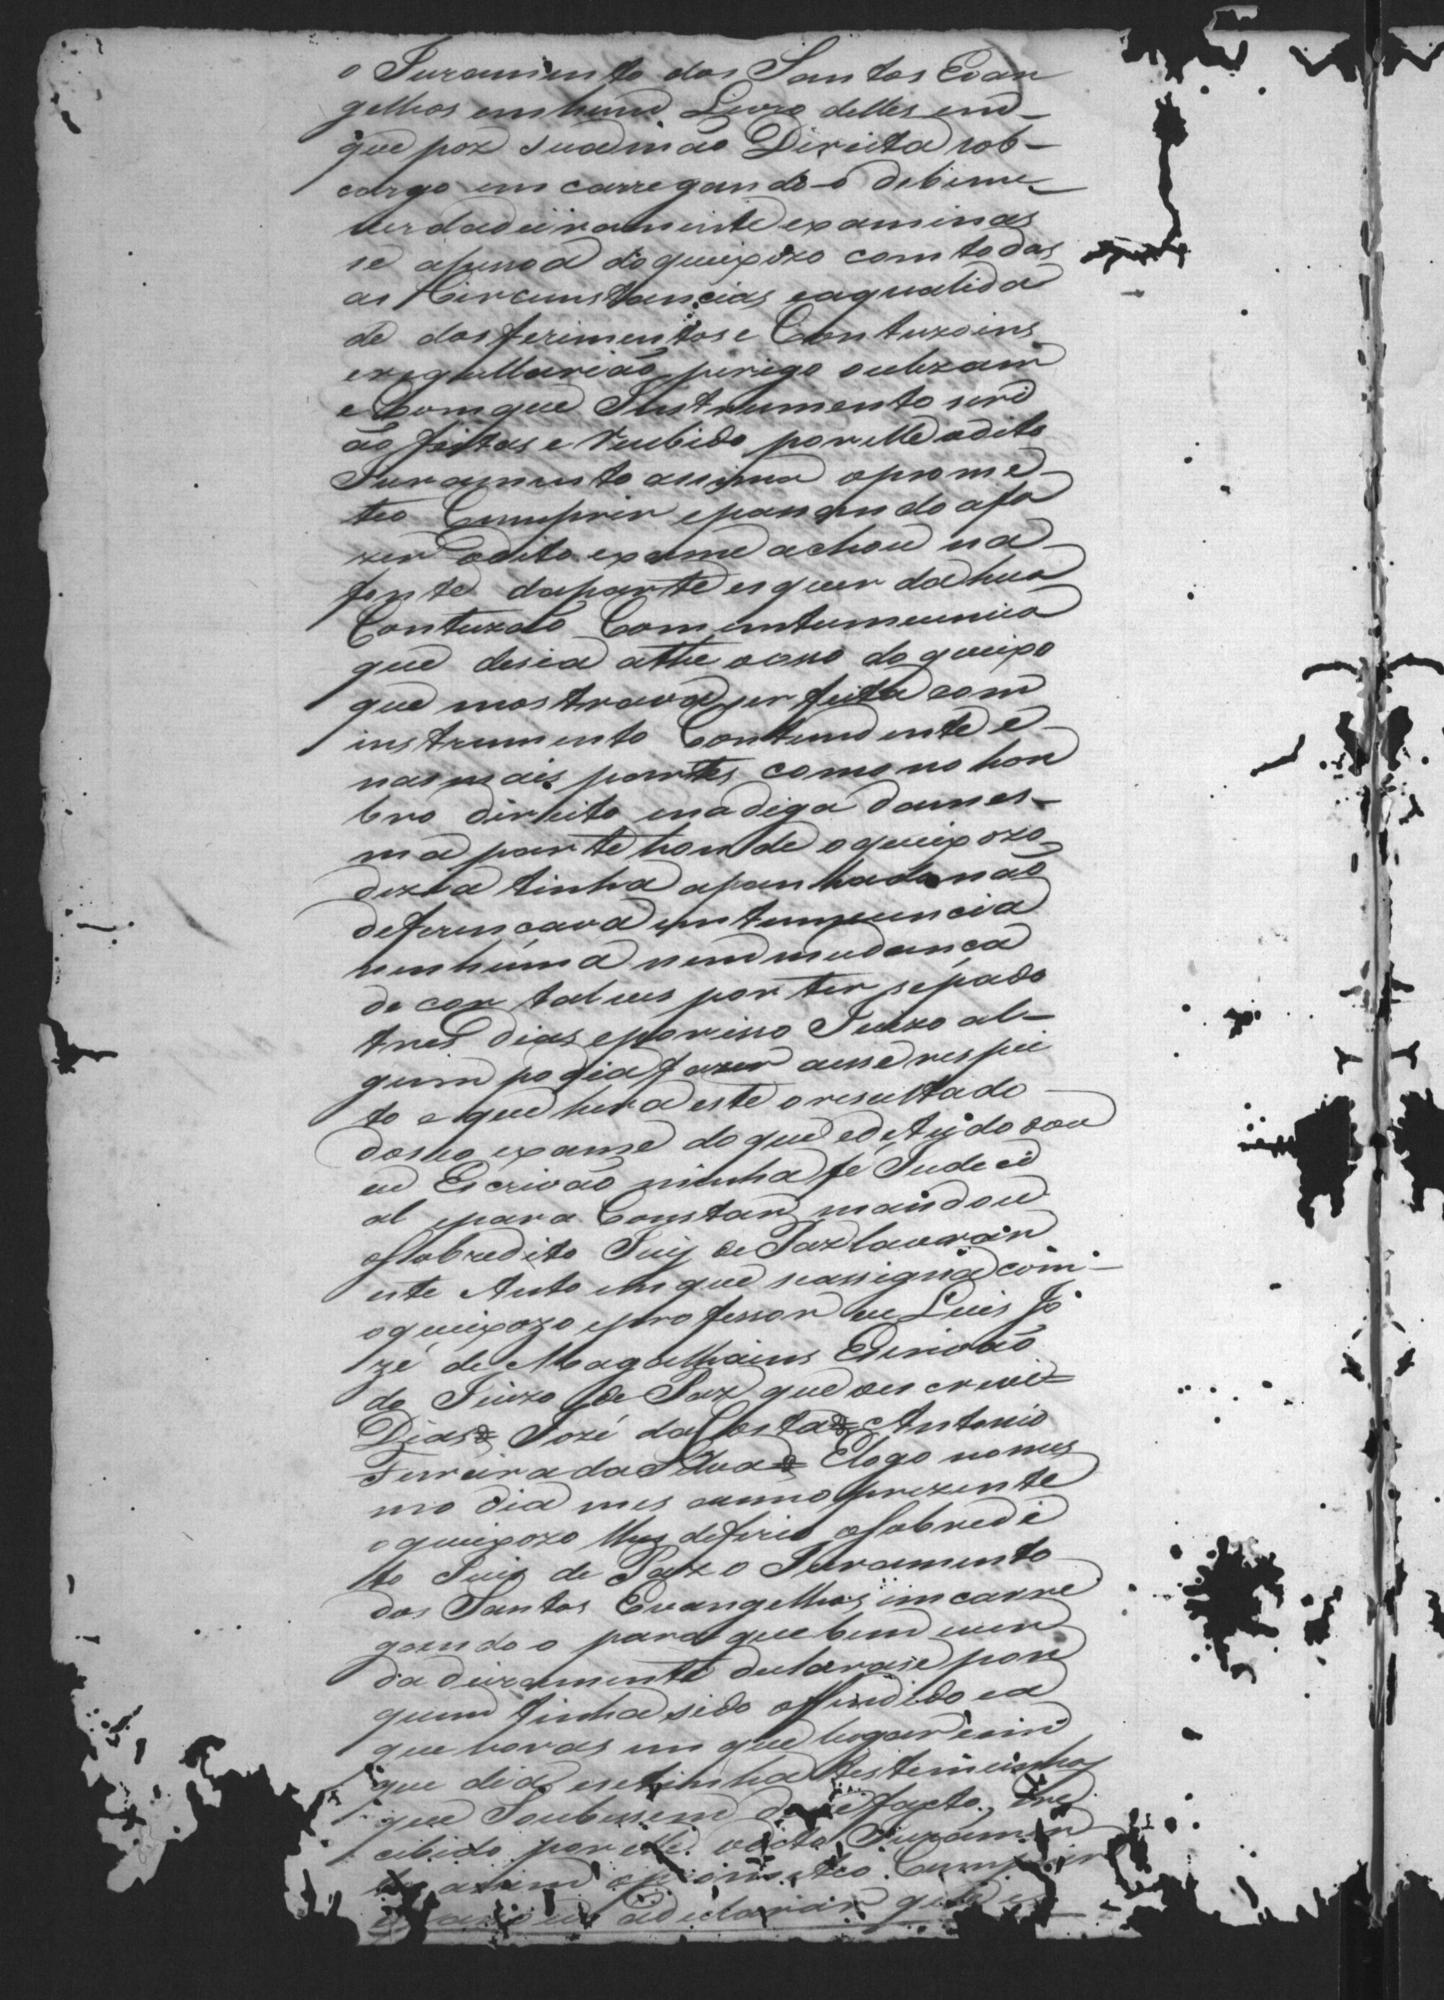 o Juramento dos Santos Evan
gelhos em hum Livro delles em
que poz sua mão Direita sob
cargo em carregando-o debem e
verdadeiramente examinas
se a pessoa do queixozo com todas
as Circunstancias e aqualida
de dos ferimentos e Contuzoins
perigo ouLezam
e Comque Instrumento serd
ão feitas e recebido porelle odito
Juramento assim o prome
teo Cumprir e pasando afa
zer odito exame achou na
fonte daparte esquerda hua
Contuzão Com intumecencia
que desia athe o oso do queixo
que mostrava ser feita com
instrumento Contundente e
nas mais partes como no hon
bro direito
ma parte honde o queixozo
dezia tinha apanhado não
deferencava intumecencia
nenhúma nem mudanca
de cor talves por ter se pasado
tres Dias e porisso Juizo al
gum podia fazer aesse respei
to e que hera este o resultado
doseo exame doque de tudo dou
eu Escrivão minha fé Judeci
al e para Constar mandou
o Sobredito Juiz de Paz lavrar
este Auto emque se assigna com
o queixozo e professor eu Luis Jo
zé de Magalhains Escrivão
do Juizo de Paz que o escrevi =
Dias = Jozé da Costa = Antonio
Ferreira da Silva = E logo no mes
mo dia mes e anno prezente
o queixozo lhe deferio o Sobredi
to Juiz de Paz o Juramento
dos Santos Evangelhos encarre
gando o para que bem e ver
dadeiramente declarase por
quem tinha sido offendido ea
que horas em que lugar e em
que dia e se tinha testemunhas
que Soubesem deste facto, e re
cebido por elle odito Juramen
to asim o prometeo Cumprir
a declarar que